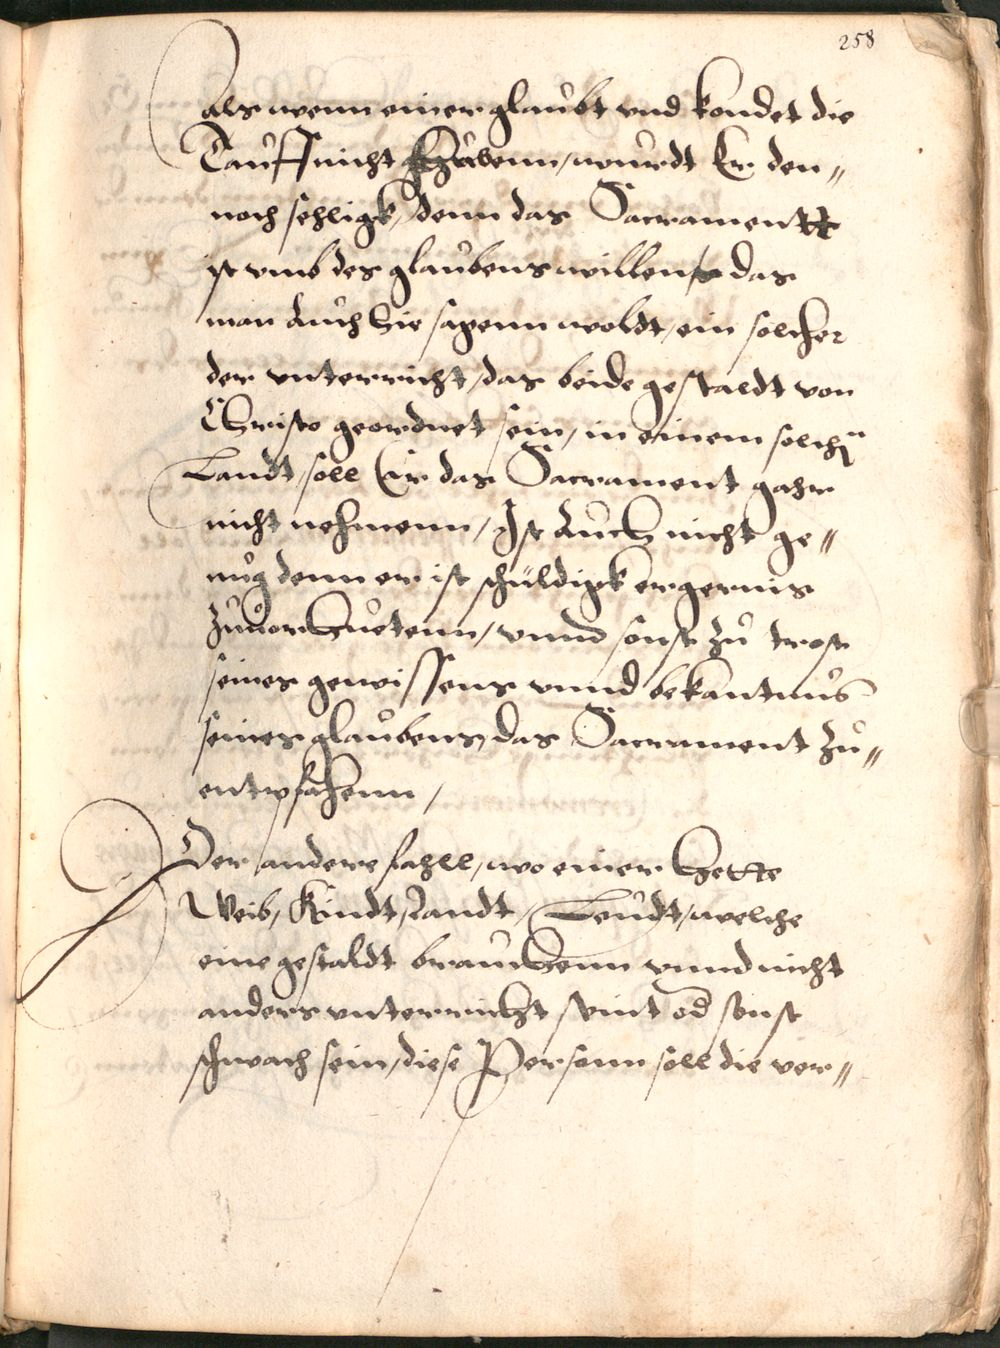 258
als wenn einer glaubt vnd kondet die
Tauff nicht habenn, wurdt Er den„
noch sehligk, denn das Sacramentt
ist vmb des glaubens willen, das
man Auch hie sagenn woldt, ein solcher
der vnterricht, das beide gestaldt von
Christo geordnet sein, in einem solchen
Landt, soll Er das Sacrament gahr
nicht nehmenn, Ist Auch nicht ge„
nug denn er ist schuldigk ergernis
zuuorhuetenn, vnnd sonst zu trost
seines gewissens vnnd bekantnus
seines glaubens, das Sacrament zu„
entpfahenn,
Der andere fahll, wo einer hette
Weib, Kindt, Landt, Leudt, welche
eine gestaldt brauchenn vnnd nicht
anders vnterricht seint od sonst
schwach sein, diese Personn soll die ver„